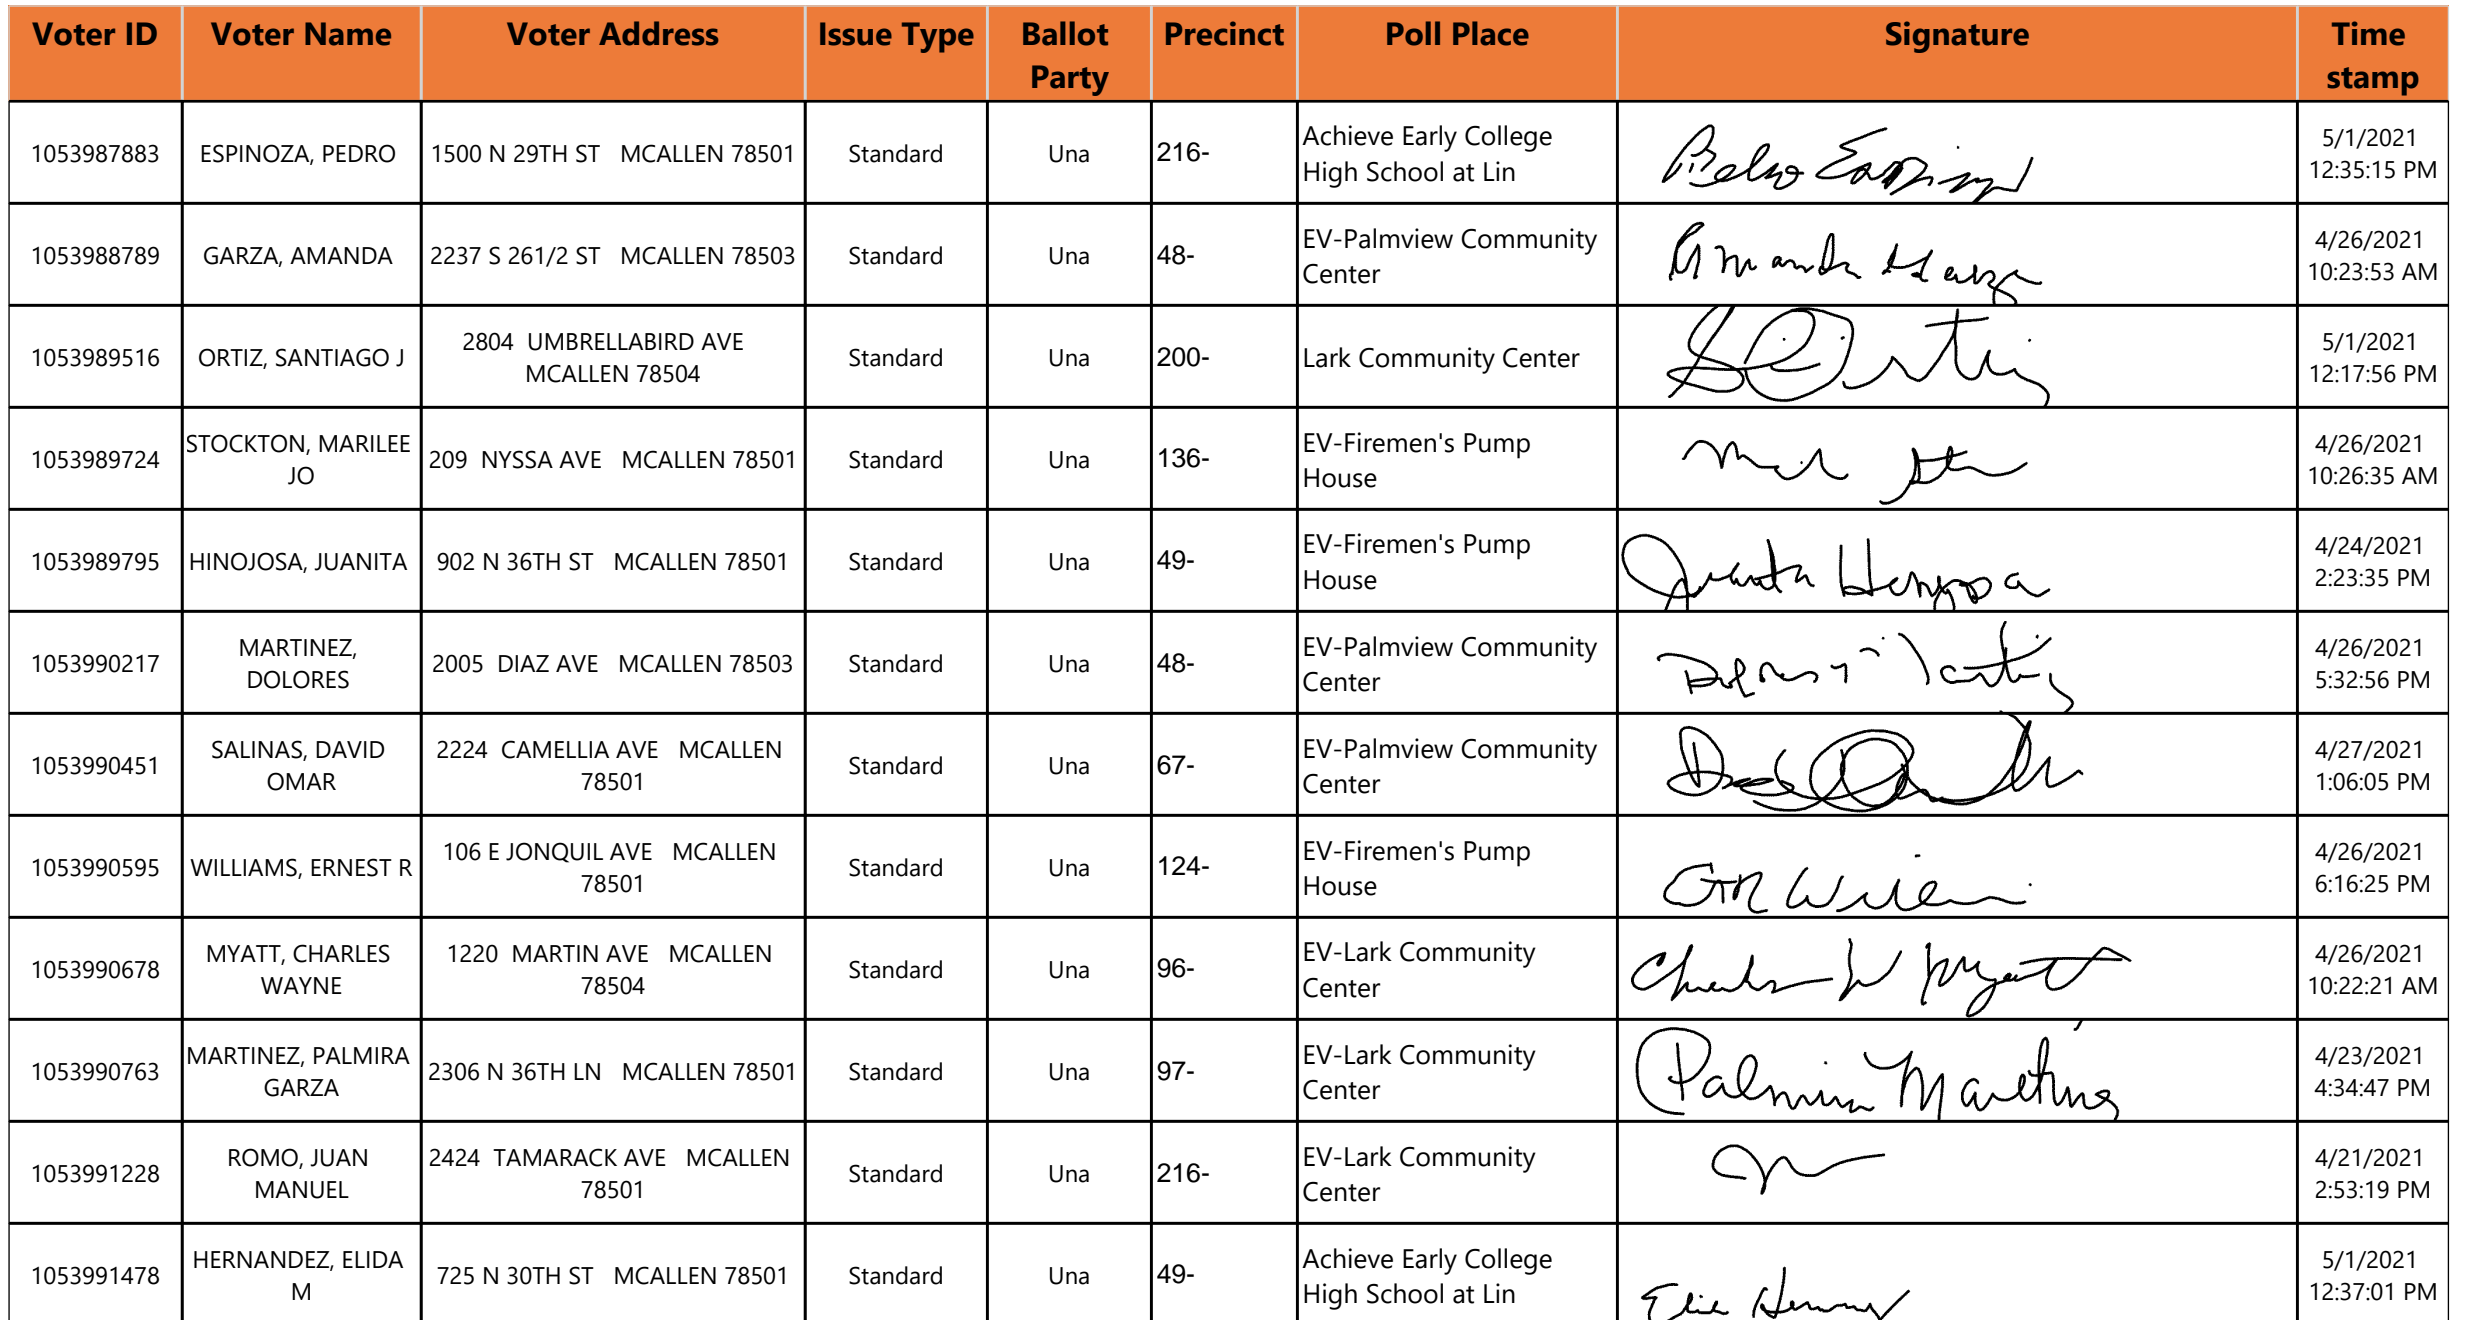 Voter ID Voter Name Voter Address Issue Type Ballot Party Precinct Poll Place Signature Time stamp
1053987883 ESPINOZA, PEDRO 1500 N 29TH ST MCALLEN 78501 Standard Una 216- Achieve Early College High School at Lin 5/1/2021 12:35:15 PM
1053988789 GARZA, AMANDA 2237 S 261/2 ST MCALLEN 78503 Standard Una 48- EV-Palmview Community Center Amanda Garza 4/26/2021 10:23:53 AM
1053989516 ORTIZ, SANTIAGO J 2804 UMBRELLABIRD AVE MCALLEN 78504 Standard Una 200- Lark Community Center 5/1/2021 12:17:56 PM
1053989724 STOCKTON, MARILEE JO 209 NYSSA AVE MCALLEN 78501 Standard Una 136- EV-Firemen's Pump House 4/26/2021 10:26:35 AM
1053989795 HINOJOSA, JUANITA 902 N 36TH ST MCALLEN 78501 Standard Una 49- EV-Firemen's Pump House 4/24/2021 2:23:35 PM
1053990217 MARTINEZ, DOLORES 2005 DIAZ AVE MCALLEN 78503 Standard Una 48- EV-Palmview Community Center 4/26/2021 5:32:56 PM
1053990451 SALINAS, DAVID OMAR 2224 CAMELLIA AVE MCALLEN 78501 Standard Una 67- EV-Palmview Community Center 4/27/2021 1:06:05 PM
1053990595 WILLIAMS, ERNEST R 106 E JONQUIL AVE MCALLEN 78501 Standard Una 124- EV-Firemen's Pump House 4/26/2021 6:16:25 PM
1053990678 MYATT, CHARLES WAYNE 1220 MARTIN AVE MCALLEN 78504 Standard Una 96- EV-Lark Community Center Charles W Myatt 4/26/2021 10:22:21 AM
1053990763 MARTINEZ, PALMIRA GARZA 2306 N 36TH LN MCALLEN 78501 Standard Una 97- EV-Lark Community Center Palmira Martinez 4/23/2021 4:34:47 PM
1053991228 ROMO, JUAN MANUEL 2424 TAMARACK AVE MCALLEN 78501 Standard Una 216- EV-Lark Community Center 4/21/2021 2:53:19 PM
1053991478 HERNANDEZ, ELIDA M 725 N 30TH ST MCALLEN 78501 Standard Una 49- Achieve Early College High School at Lin 5/1/2021 12:37:01 PM